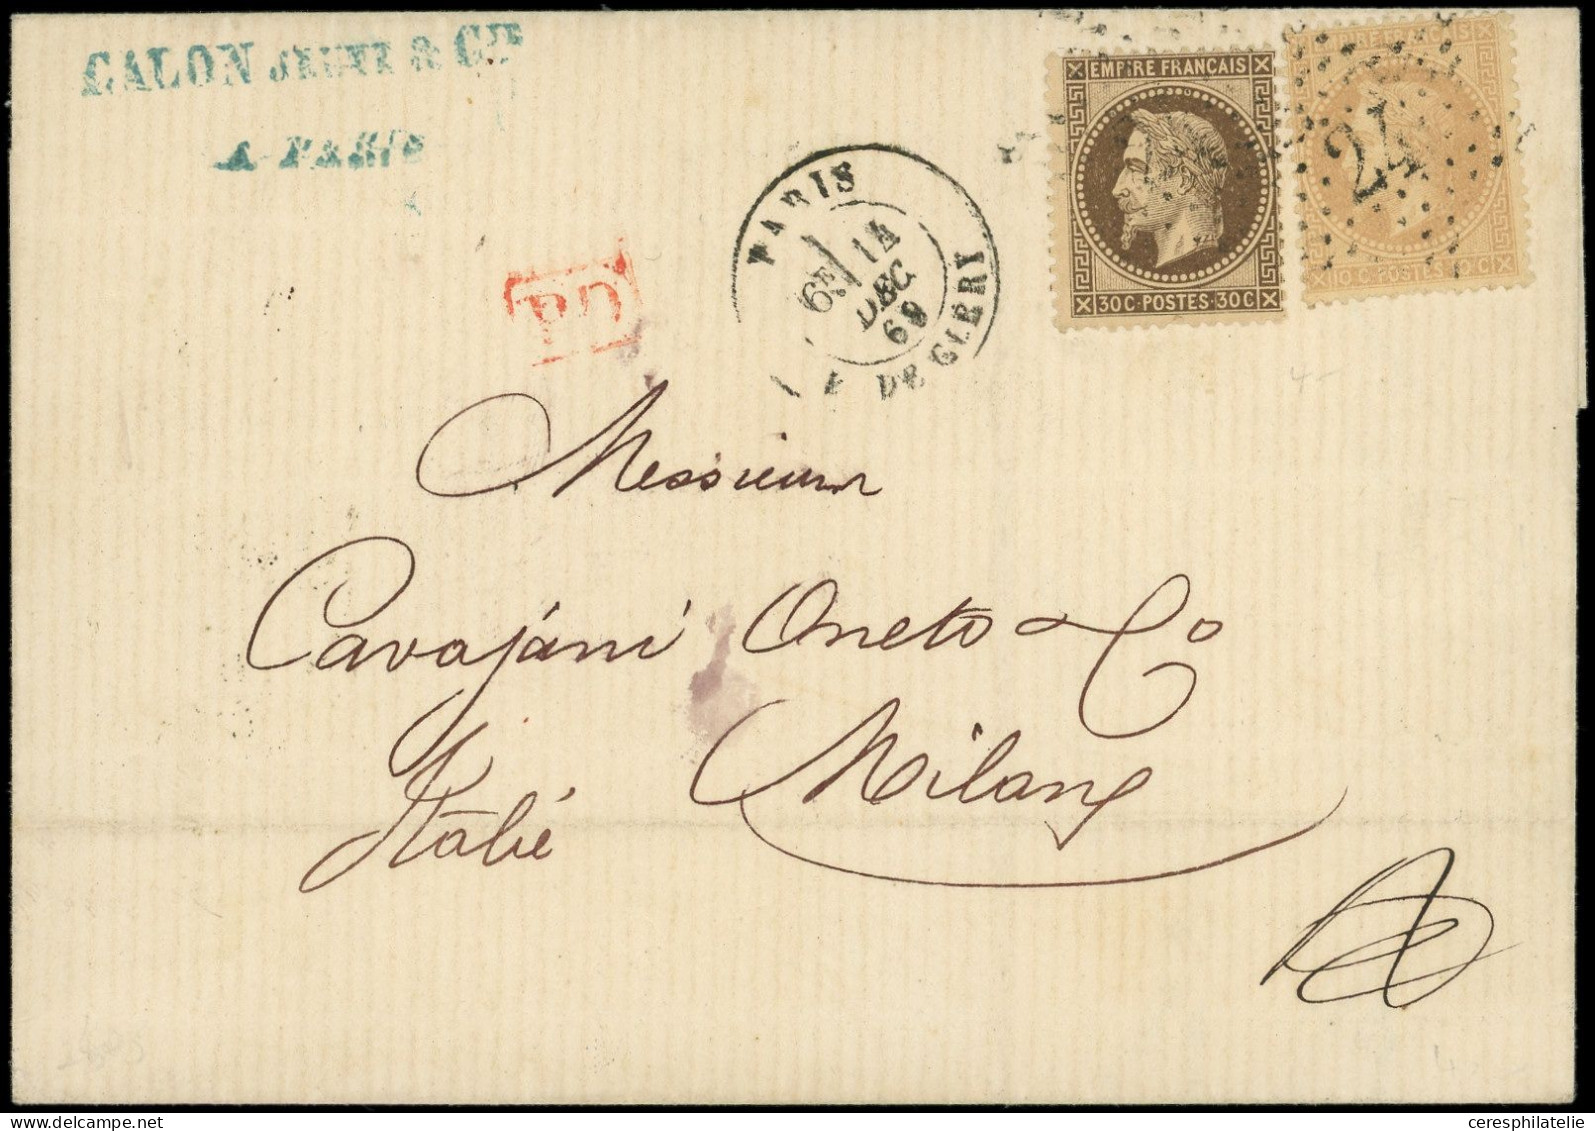 CALON JEUNE & CIE
A PARIS
EMPIRE FRANÇAIS
30 C · POSTES · 30 C
EMPIRE FRANÇAIS
24
10 C · POSTES 10 C
PARIS
6E 14
DEC
69
R DE CLERY
PD
Messieurs
Cavajani Oneto & Co
Milan
Italie
ceresphilatelie